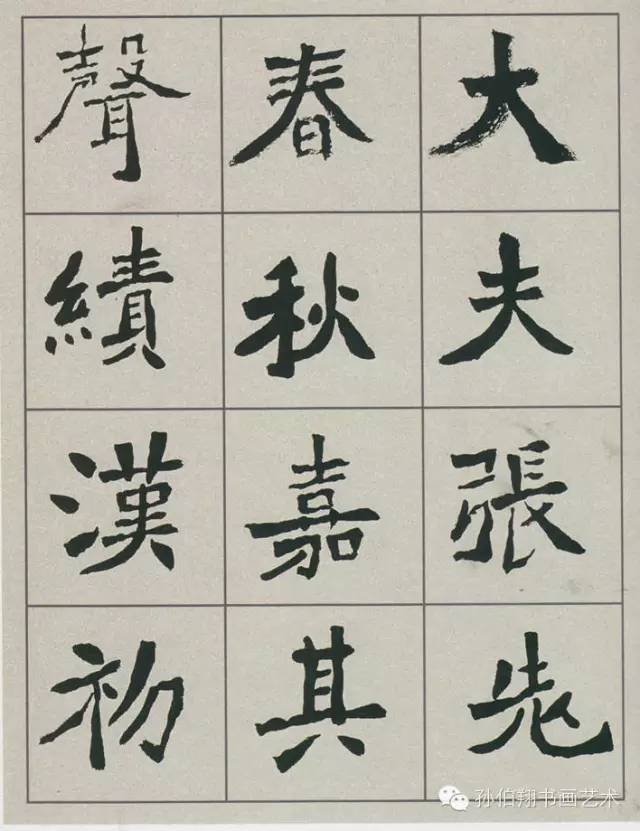 大夫張先
春秋嘉其
聲績漢初
孙伯翔书画艺术